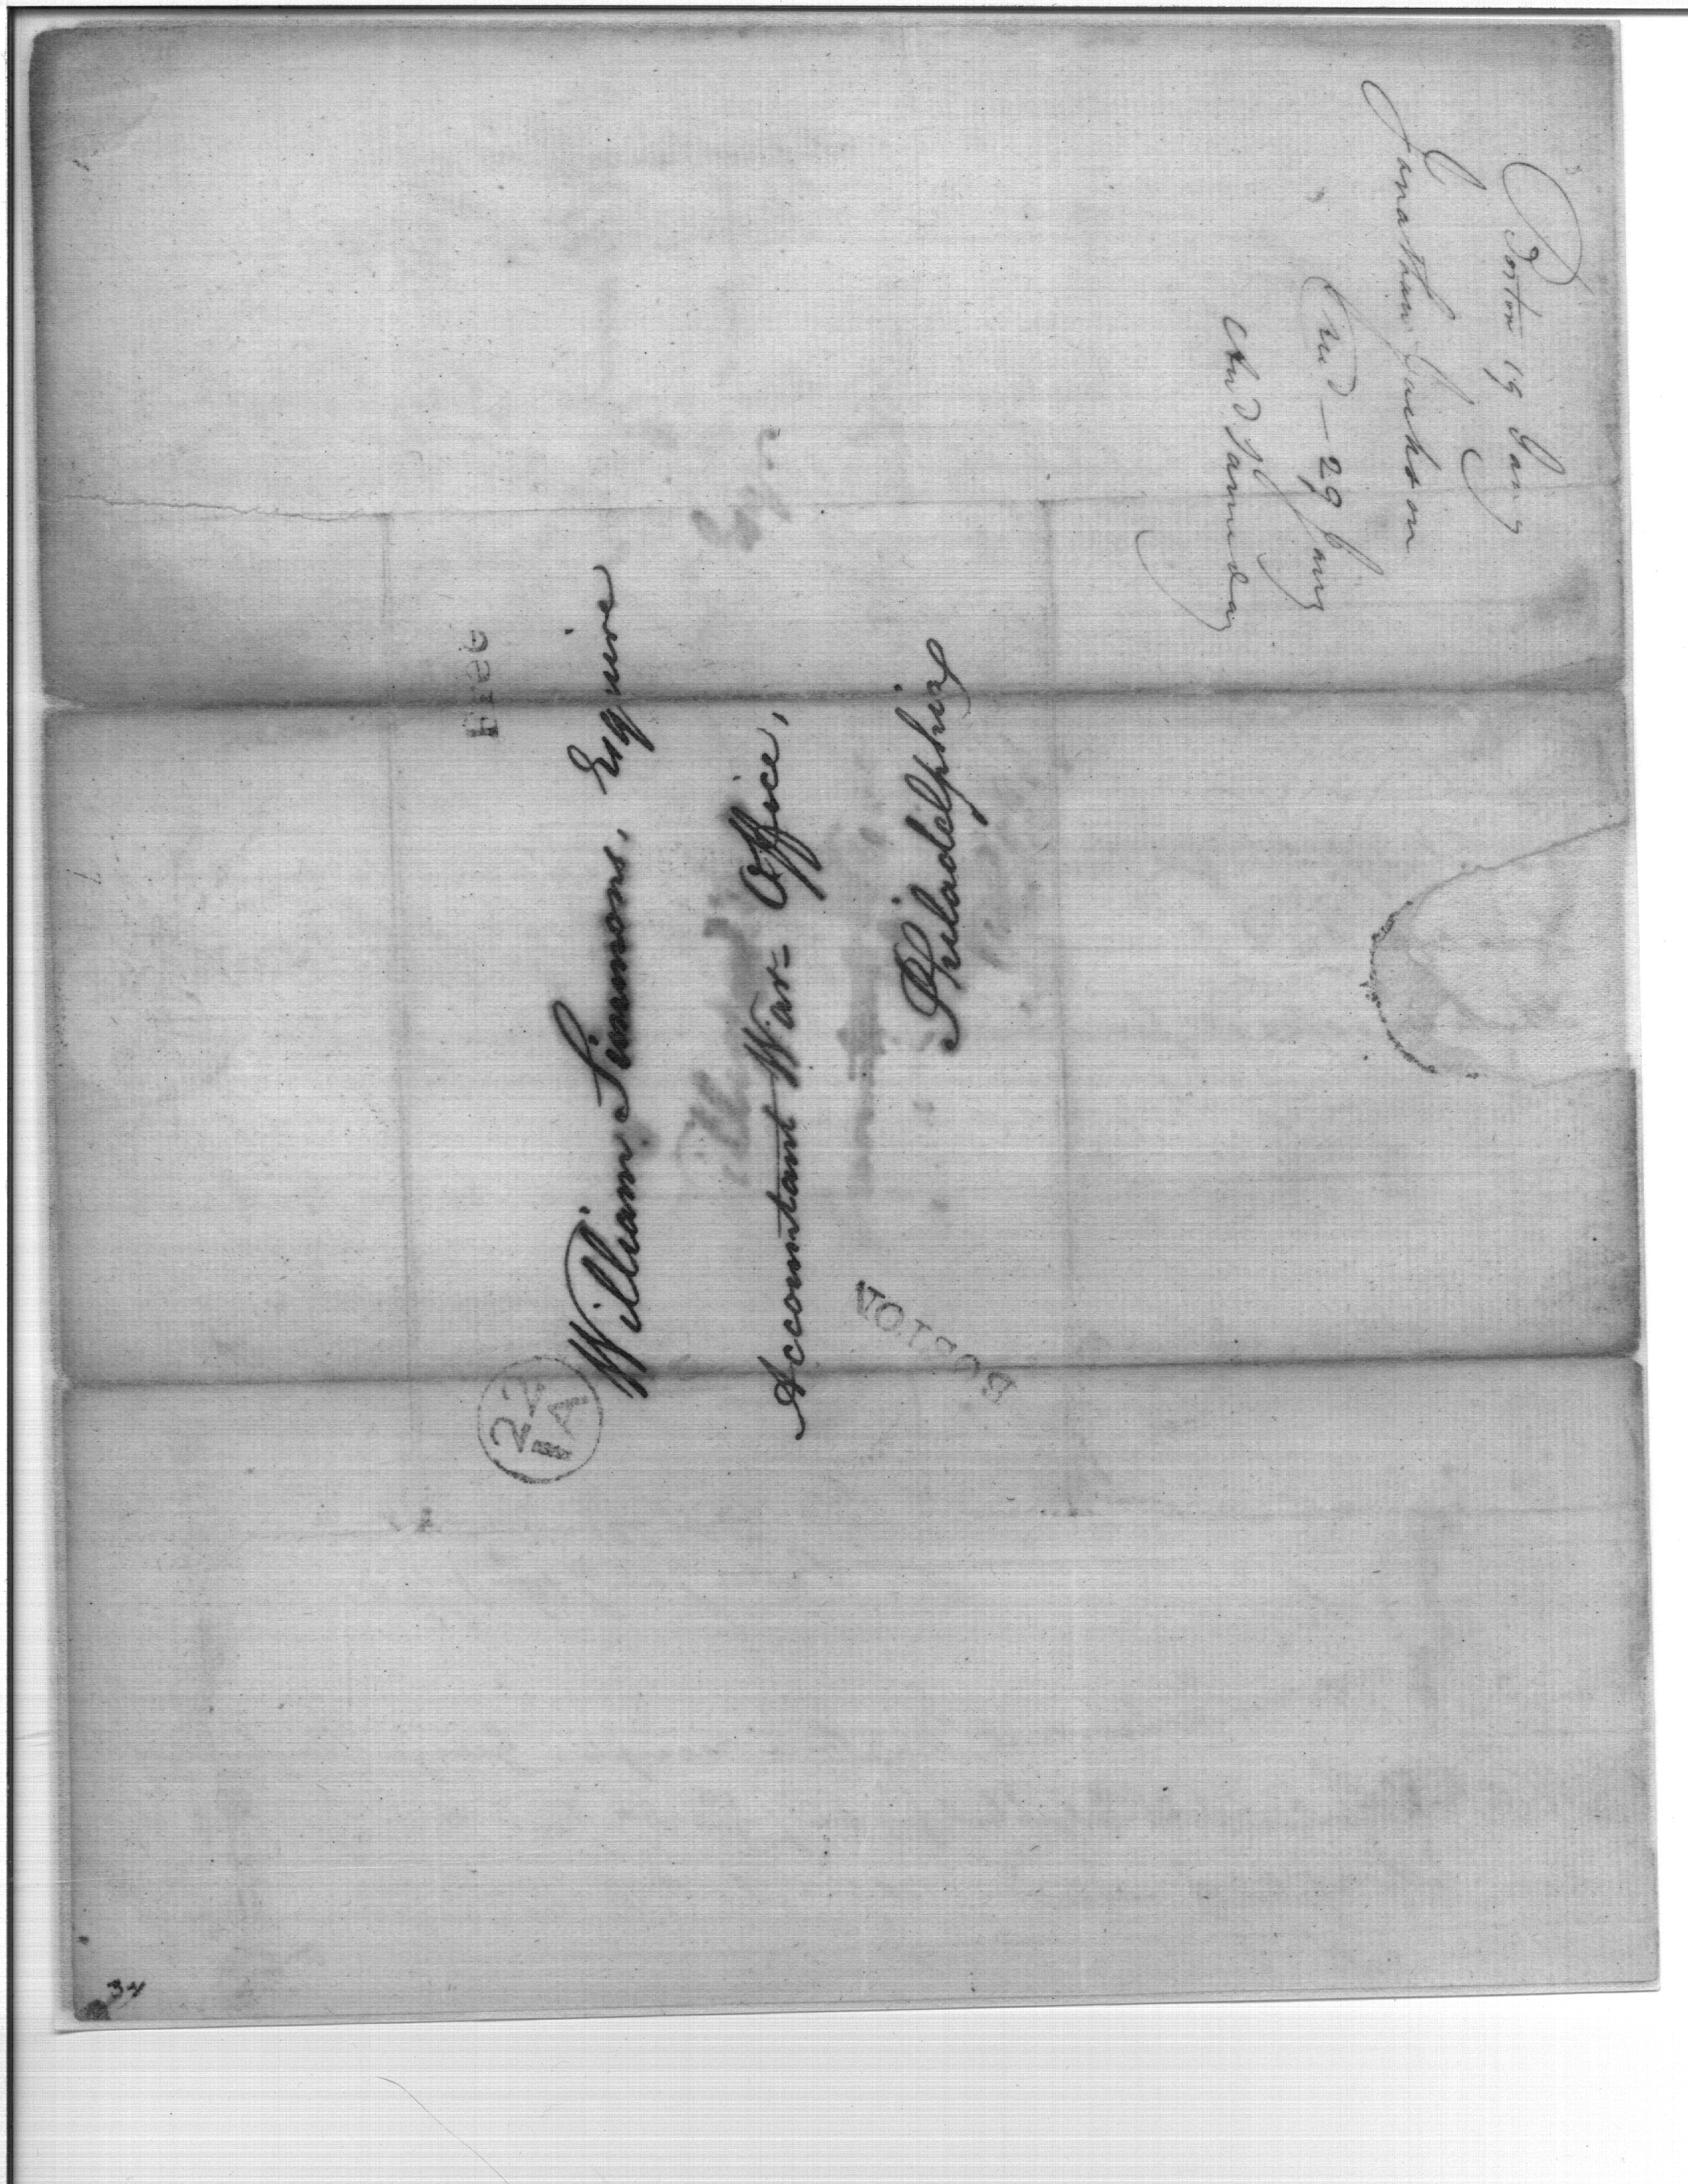 Free
22
IA
William Simmons, Esquire
Accountant War= Office,
Philadelphia
BOSTON
Boston 19 Jany
Jonathan Jackson
recd — 29 Jany
And same day
34